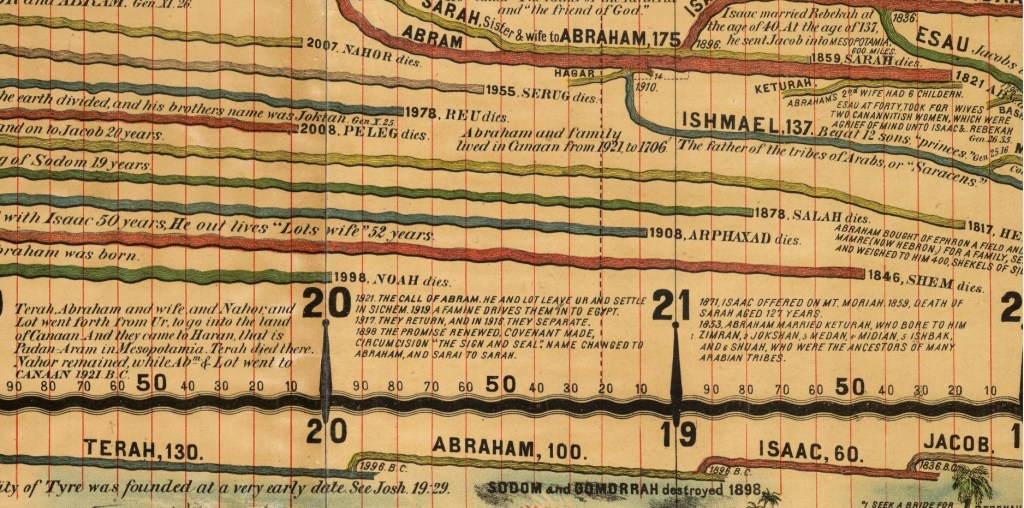 and ABRAM. Gen. XI. 26.
and "the friend of God."
SARAH, Sister & wife to ABRAHAM, 175
ABRAM
1896.
Isaac married Rebekah at
the age of 40. At the age of 137,
he sent Jacob into MESOPOTAMIA,
600 MILES.
1836.
ESAU
2007. NAHOR dies.
1859 SARAH dies.
HAGAR
14
1910.
1821
KETURAH.
ABRAHAMS 2nd WIFE HAD 6 CHILDERN.
1955, SERUG dies.
ESAU AT FORTY, TOOK FOR WIVES
TWO CANANNITISH WOMEN, WHICH WERE
A GRIEF OF MIND UNTO ISAAC & REBEKAH
Gen. 26. 35.
the earth divided, and his brothers name was Joktan. Gen X. 25
1978, REU dies.
and on to Jacob 20 years.
2008, PELEG dies.
Abraham and family
lived in Canaan from 1921, to 1706
ISHMAEL, 137.
Begat 12 sons, "princes." Gen 25.16
The father of the tribes of Arabs, or "Saracens."
of Sodom 19 years.
1878, SALAH dies.
1817.
with Isaac 50 years, He out lives "Lots wife" 52 years.
1908, ARPHAXAD dies.
ABRAHAM BOUGHT OF EPHRON A FIELD
MAMRE (NOW HEBRON,) FOR A FAMILY,
AND WEIGHED TO HIM 400, SHEKELS OF
Abraham was born.
1998, NOAH dies.
1846, SHEM dies.
Terah, Abraham and wife and Nahor, and
Lot went forth from Ur, to go into the land
of Canaan. And they came to Haran, that is
Padan-Aram in Mesopotamia. Terah died there.
Nahor remained, while Abm & Lot went to
CANAAN 1921 B.C.
20
1921. THE CALL OF ABRAM. HE AND LOT LEAVE UR AND SETTLE
IN SICHEM. 1919, A FAMINE DRIVES THEM INTO EGYPT.
1917. THEY RETURN, AND IN 1916 THEY SEPARATE.
1898 THE PROMISE RENEWED, COVENANT MADE,
CIRCUMCISION "THE SIGN AND SEAL". NAME CHANGED TO
ABRAHAM, AND SARAI TO SARAH.
21
1871, ISAAC OFFERED ON MT. MORIAH. 1859, DEATH OF
SARAH AGED 127 YEARS.
1853, ABRAHAM MARRIED KETURAH, WHO BORE TO HIM
1 ZIMRAN, 2 JOKSHAN, 3 MEDAN, 4 MIDIAN, 5 ISHBAK,
AND 6 SHUAH, WHO WERE THE ANCESTORS OF MANY
ARABIAN TRIBES.
2
90 80 70 60 50 40 30 20 10 90 80 70 60 50 40 30 20 10 90 80 70 60 50 40 30 20 10
20 19 1
TERAH, 130. ABRAHAM, 100. ISAAC, 60. JACOB.
1996. B.C. 1896. B.C. 1836. B.C.
City of Tyre was founded at a very early date. See Josh. 19:29.
SODOM and GOMORRAH destroyed 1898
"I SEEK A BRIDE FOR